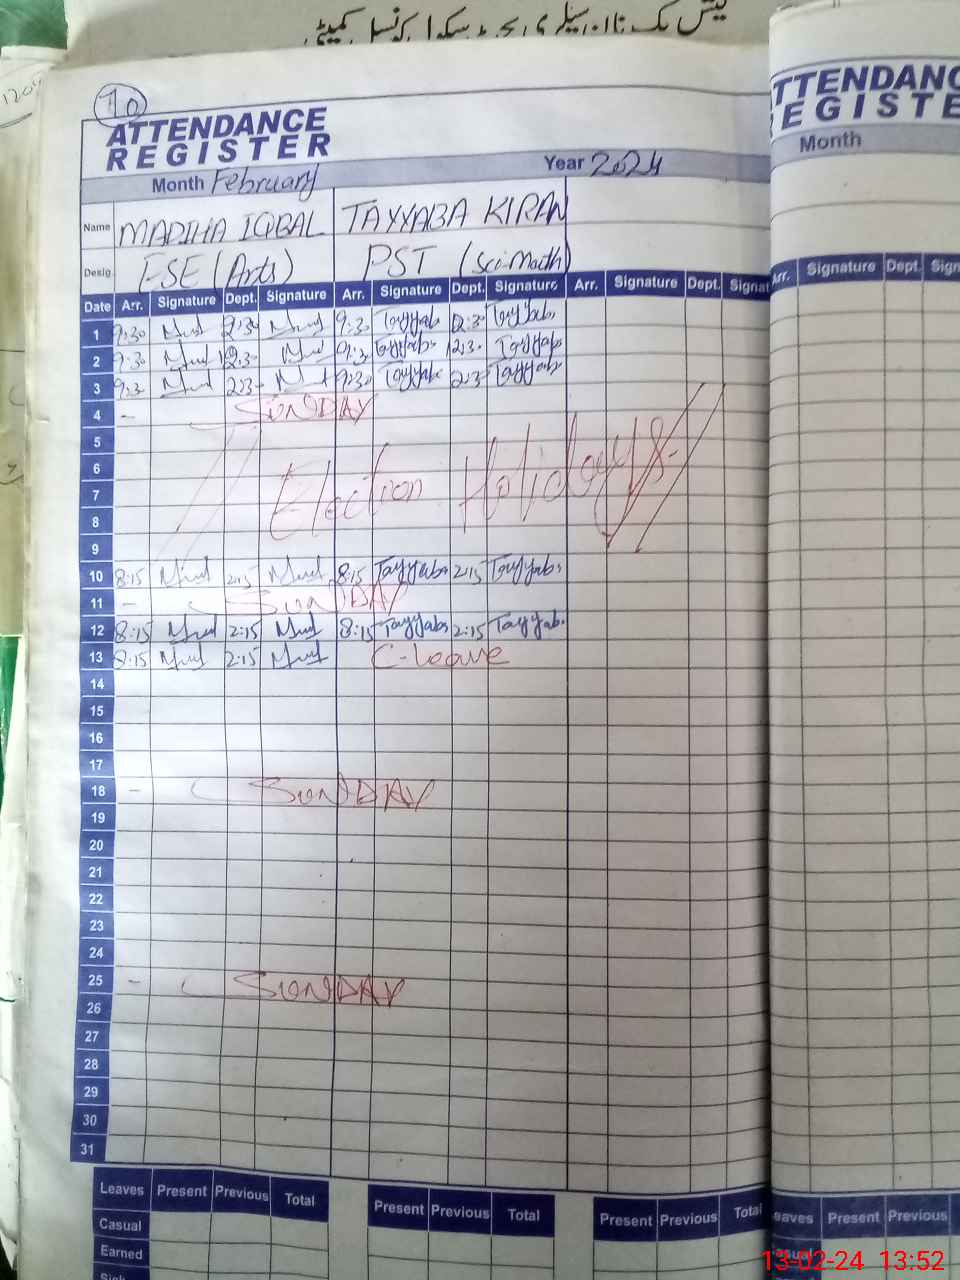 10
ATTENDANCE
REGISTER
Month February Year 2024
Name MADIHA IQBAL TAYYABA KIRAN
Desig. ESE (Arts) PST (Sci-Math)
Date Arr. Signature Dept. Signature Arr. Signature Dept. Signature Arr. Signature Dept. Signat
1 9:30 2:30 9:30 Tayyab 12:30 Tayyabs
2 9:30 12:30 9:3 Tayyabs 12:30 Tayyabs
3 9:3 2:3 9:30 Tayyabs 12:3 Tayyabs
4 - SUNDAY
5
6
7 Election Holidays
8
9
10 8:15 2:15 8:15 Tayyabs 2:15 Tayyabs
11 - SUNDAY
12 8:15 2:15 8:15 Tayyabs 2:15 Tayyab.
13 8:15 2:15 C-leave
14
15
16
17
18 - SUNDAY
19
20
21
22
23
24
25 - SUNDAY
26
27
28
29
30
31
Leaves Present Previous Total Present Previous Total Present Previous Total
Casual
Earned
TTENDANC
REGISTE
Month
Arr. Signature Dept. Sign
eaves Present Previous
13-02-24 13:52